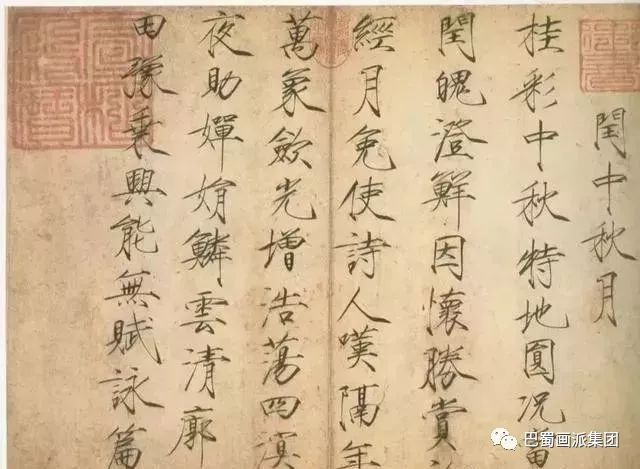 閏中秋月
桂彩中秋特地圓况
閏魄澄鮮因懷勝賞
經月免使詩人嘆隔年
萬象歛光增浩蕩四溟
夜助嬋娟鱗雲清廓
田豫乘興能無賦詠篇
巴蜀画派集团